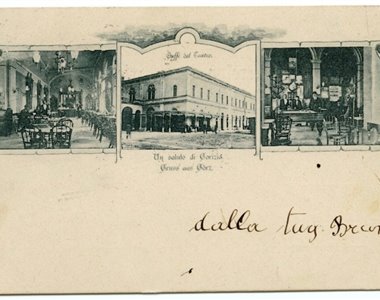 Caffè del Teatro.
Un saluto di Gorizia
Gruss aus Görz.
dalla tua